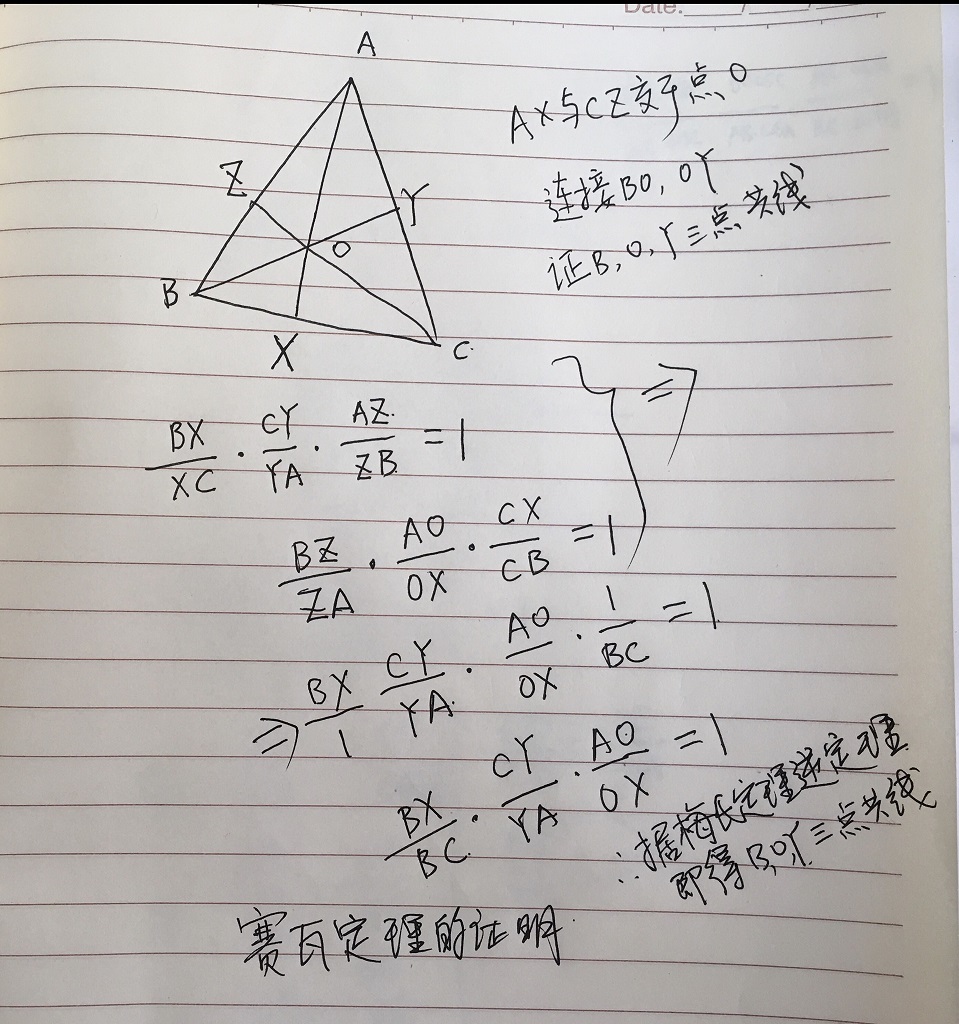 Date:
A
AX与CZ交于点O
Z
连接BO,OY
Y
证B,O,Y三点共线
O
B
X
C
BX/XC · CY/YA · AZ/ZB = 1
⇒
BZ/ZA · AO/OX · CX/CB = 1
⇒ BX/1 CY/YA · AO/OX · 1/BC = 1
BX/BC · CY/YA · AO/OX = 1
∴据梅氏定理逆定理
即得B,O,Y三点共线
赛瓦定理的证明